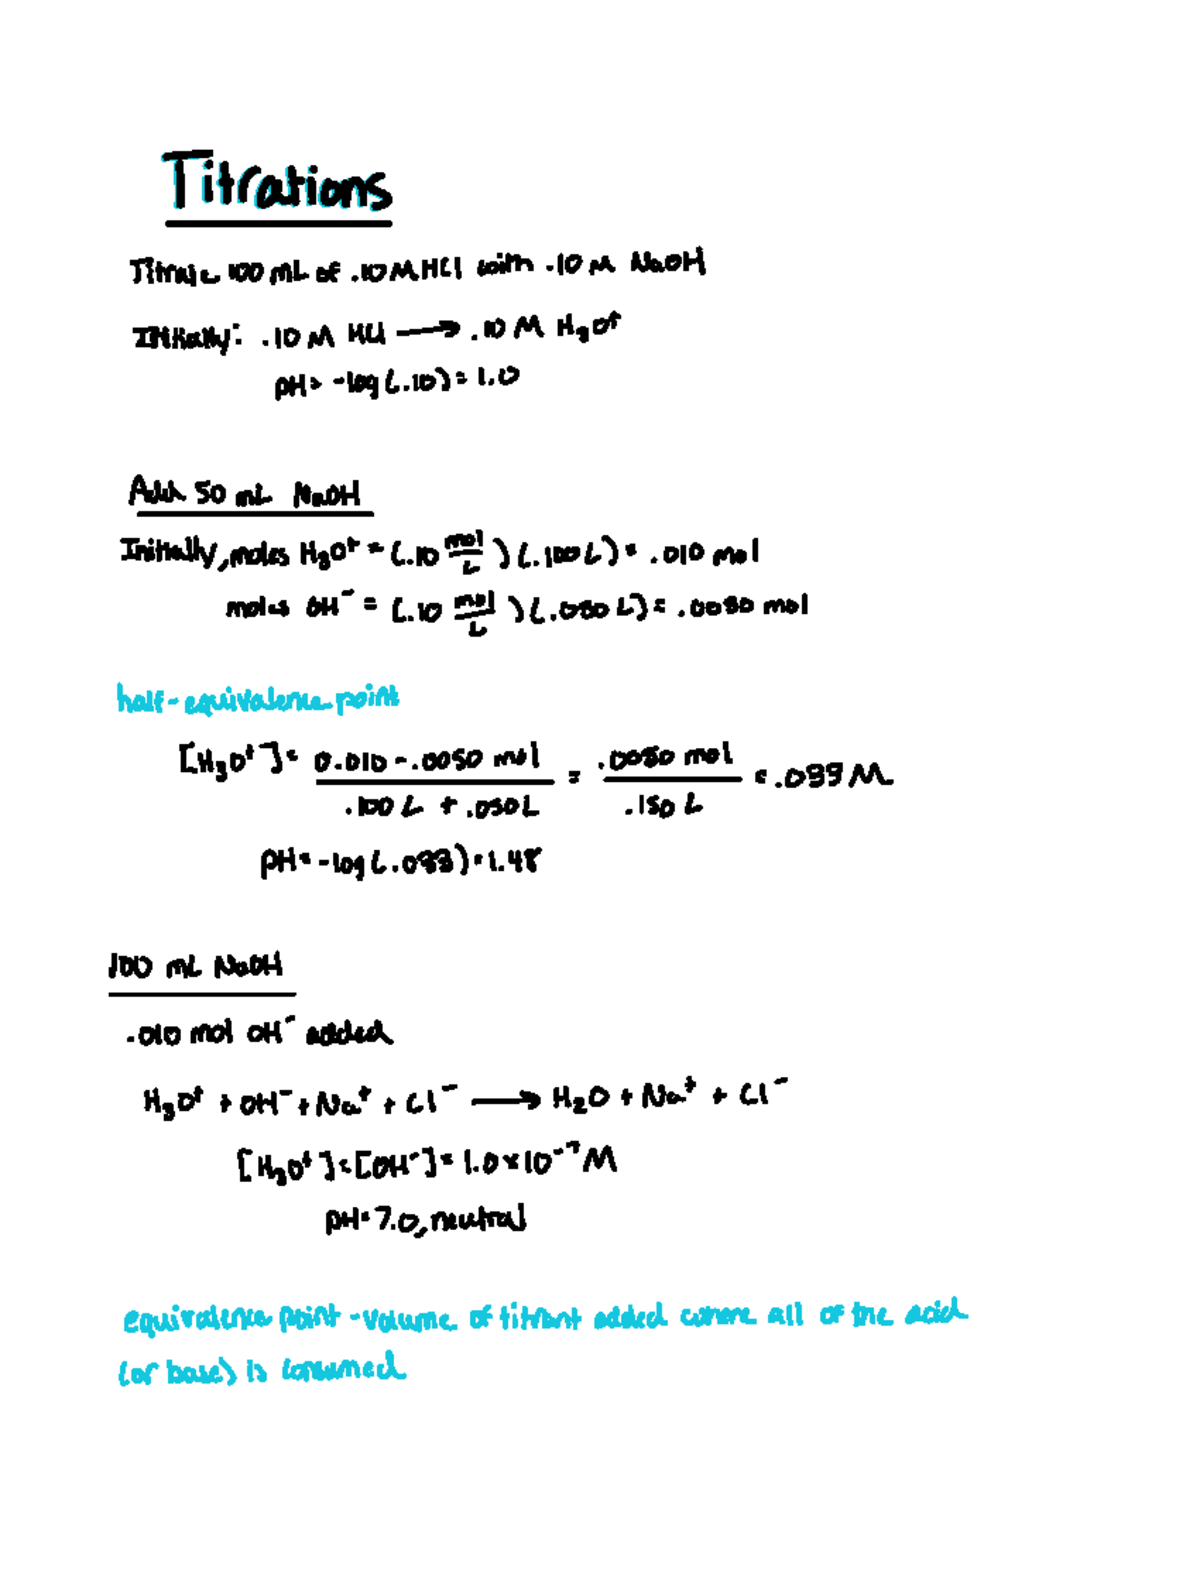 Titrations
Titrate 100 mL of .10 M HCl with .10 M NaOH
Initially: .10 M HCl ⟶ .10 M H₃O⁺
pH = -log(.10) = 1.0
Add 50 mL NaOH
Initially, moles H₃O⁺ = (.10 mol/L)(.100 L) = .010 mol
moles OH⁻ = (.10 mol/L)(.050 L) = .0050 mol
half-equivalence point
[H₃O⁺] = (0.010 - .0050 mol)/(.100 L + .050 L) = .0050 mol/.150 L = .033 M
pH = -log(.033) = 1.48
100 mL NaOH
.010 mol OH⁻ added
H₃O⁺ + OH⁻ + Na⁺ + Cl⁻ ⟶ H₂O + Na⁺ + Cl⁻
[H₃O⁺] = [OH⁻] = 1.0 × 10⁻⁷ M
pH = 7.0, neutral
equivalence point - volume of titrant added where all of the acid
(or base) is consumed